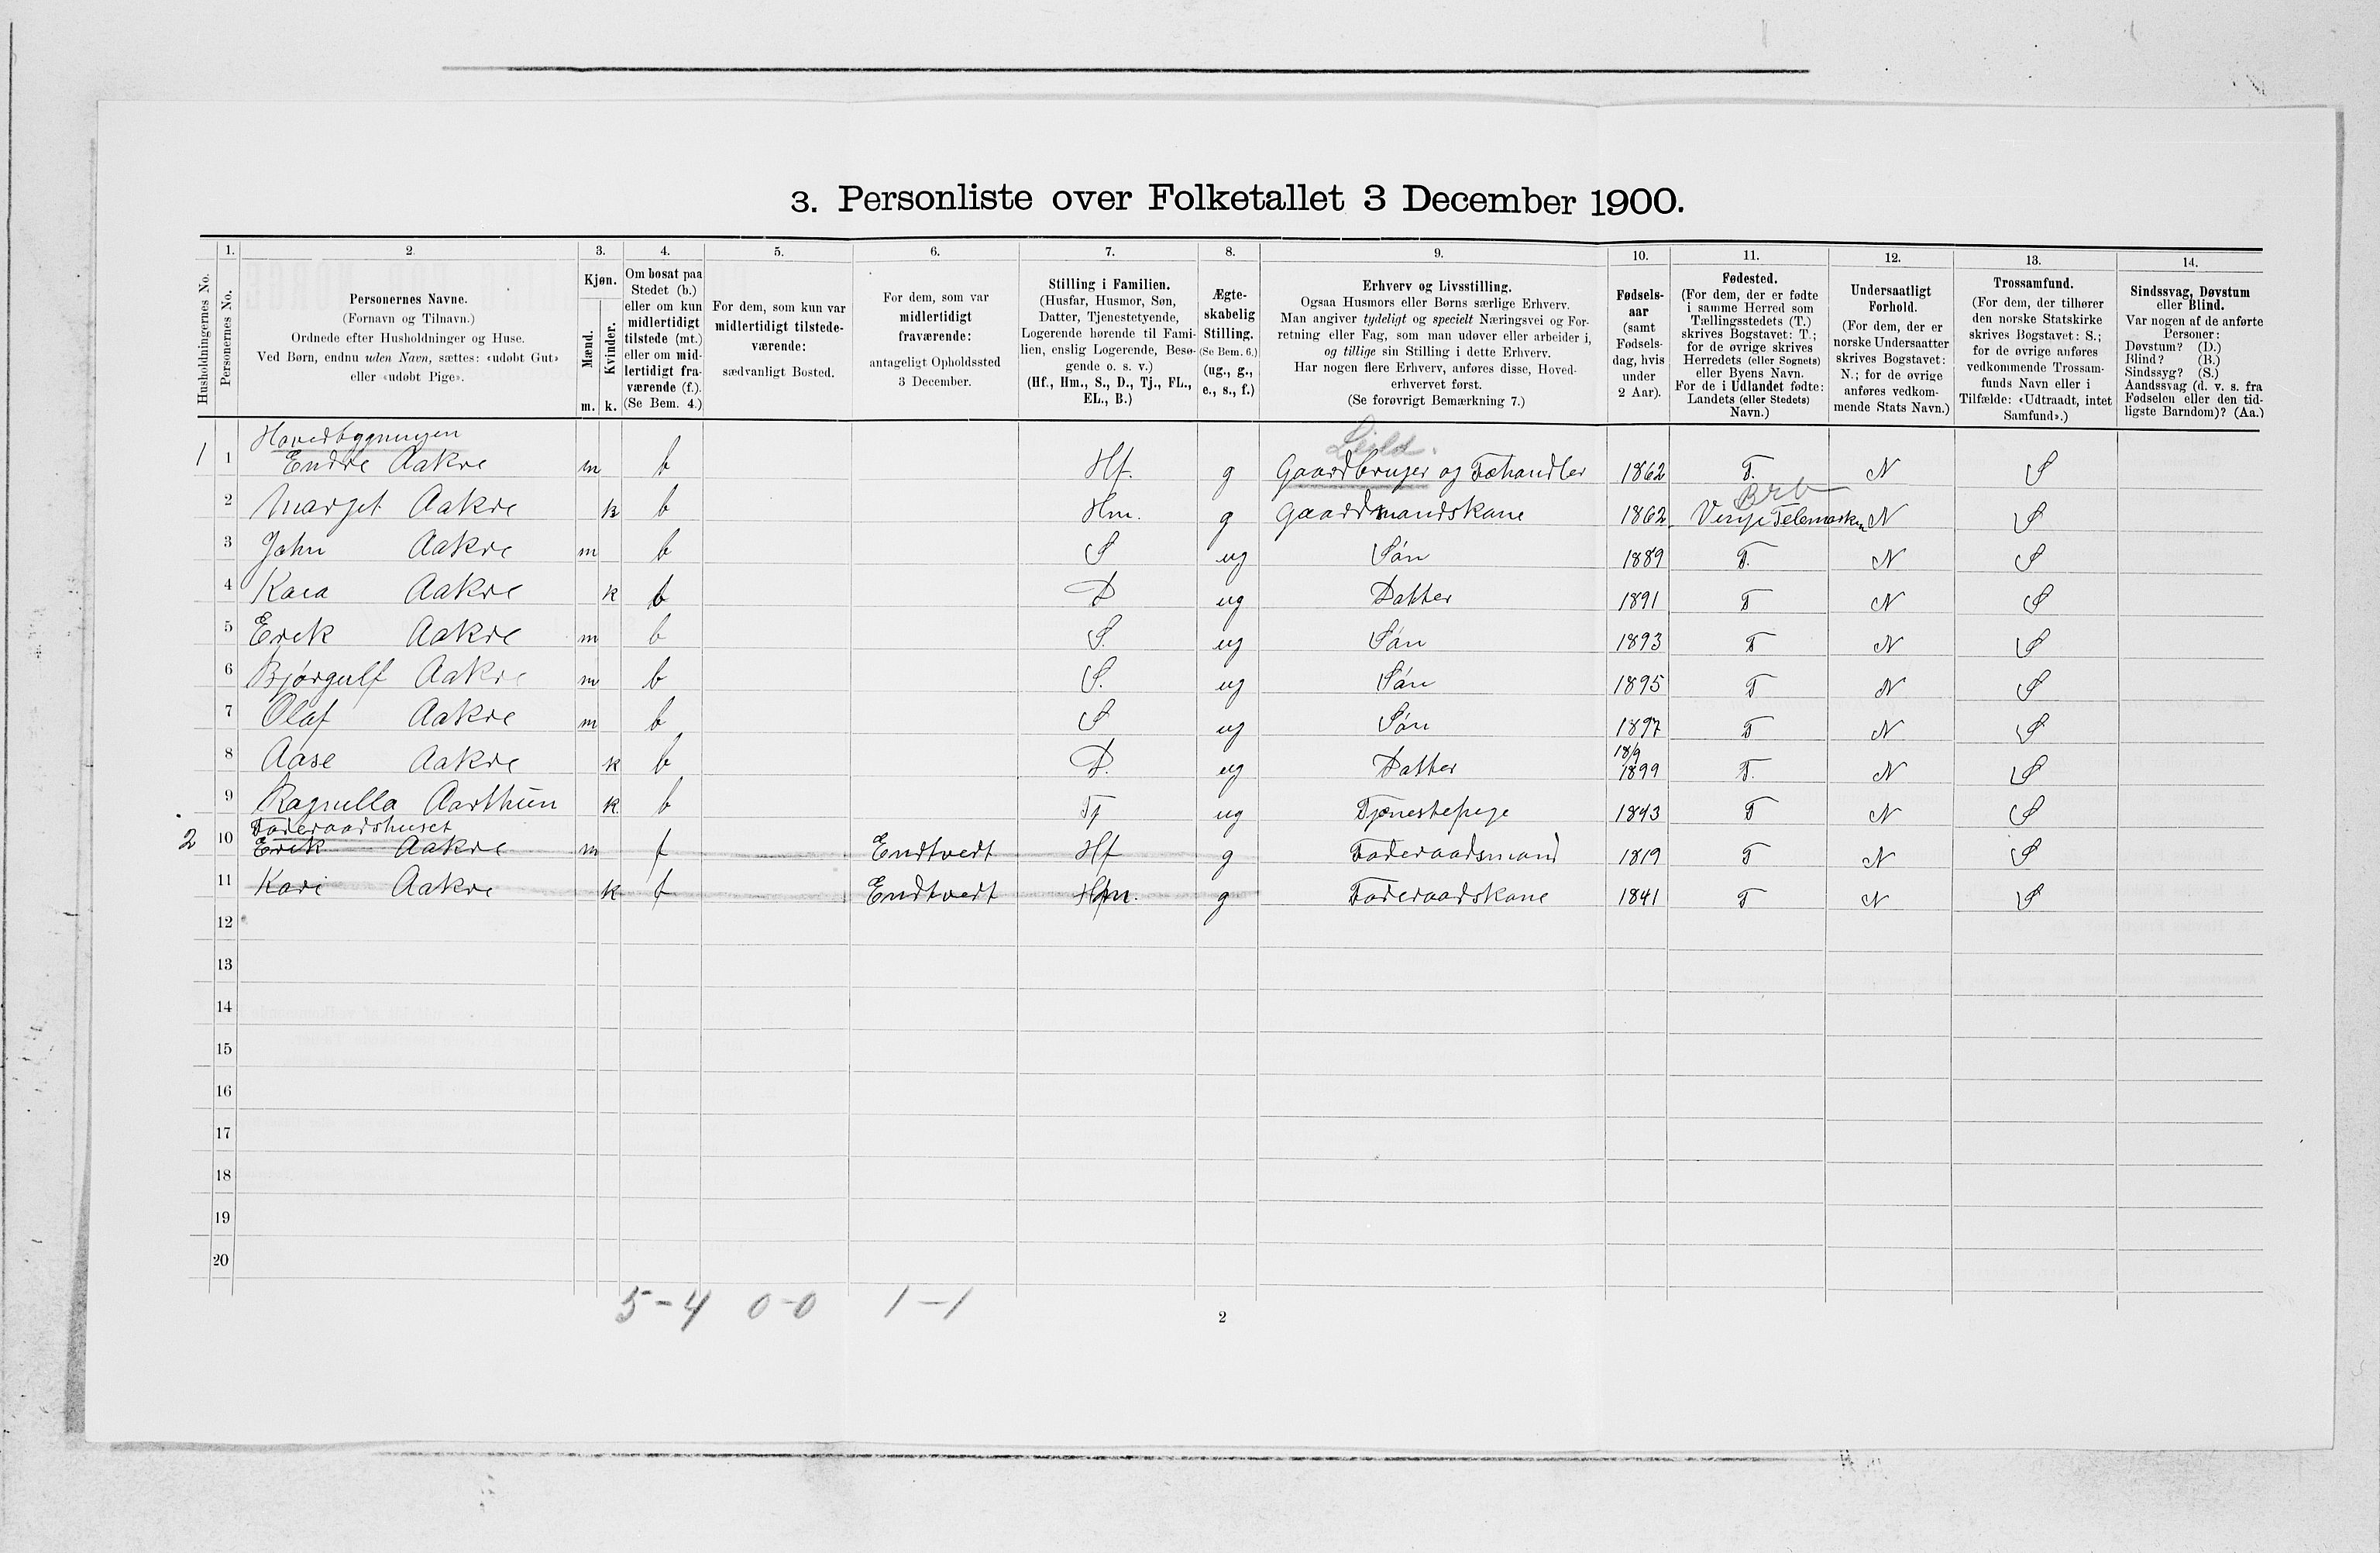 3. Personliste over Folketallet 3 December 1900.
Husholdningernes No.
1.
Personernes No.
2.
Personernes Navne.
(Fornavn og Tilnavn.)
Ordnede efter Husholdninger og Huse.
Ved Børn, endnu uden Navn, sættes: «udøbt Gut»
eller «udøbt Pige».
3.
Kjøn.
Mænd.
Kvinder.
m. k.
4.
Om bosat paa
Stedet (b.)
eller om kun
midlertidigt
tilstede (mt.)
eller om mid-
lertidigt fra-
værende (f.).
(Se Bem. 4.)
5.
For dem, som kun var
midlertidigt tilstede-
værende:
sædvanligt Bosted.
6.
For dem, som var
midlertidigt
fraværende:
antageligt Opholdssted
3 December.
7.
Stilling i Familien.
(Husfar, Husmor, Søn,
Datter, Tjenestetyende,
Logerende hørende til Fami-
lien, enslig Logerende, Besø-
gende o. s. v.)
(Hf., Hm., S., D., Tj., FL.,
EL., B.)
8.
Ægte-
skabelig
Stilling.
(Se Bem. 6.)
(ug., g.,
e., s., f.)
9.
Erhverv og Livsstilling.
Ogsaa Husmors eller Børns særlige Erhverv.
Man angiver tydeligt og specielt Næringsvei og For-
retning eller Fag, som man udøver eller arbeider i,
og tillige sin Stilling i dette Erhverv.
Har nogen flere Erhverv, anføres disse, Hoved-
erhvervet først.
(Se forøvrigt Bemærkning 7.)
10.
Fødsels-
aar
(samt
Fødsels-
dag, hvis
under
2 Aar).
11.
Fødested.
(For dem, der er fødte
i samme Herred som
Tællingsstedets (T.)
skrives Bogstavet: T.;
for de øvrige skrives
Herredets (eller Sognets)
eller Byens Navn.
For de i Udlandet fødte:
Landets (eller Stedets)
Navn.)
12.
Undersaatligt
Forhold.
(For dem, der er
norske Undersaatter
skrives Bogstavet:
N.; for de øvrige
anføres vedkom-
mende Stats Navn.)
13.
Trossamfund.
(For dem, der tilhører
den norske Statskirke
skrives Bogstavet: S.;
for de øvrige anføres
vedkommende Trossam-
funds Navn eller i
Tilfælde: «Udtraadt, intet
Samfund».)
14.
Sindssvag, Døvstum
eller Blind.
Var nogen af de anførte
Personer:
Døvstum? (D.)
Blind? (B.)
Sindssyg? (S.)
Aandssvag (d. v. s. fra
Fødselen eller den tid-
ligste Barndom)? (Aa.)
Hovedbygningen
Leild.
1 1 Endre Aakre m b Hf. g Gaardbruger og Fæhandler 1862 T. N S
Brb
2 Marget Aakre k b Hm. g Gaardmandskone 1862 Vinje Telemarken N S
3 John Aakre m b S ug Søn 1889 T. N S
4 Kaia Aakre k b D ug Datter 1891 T N S
5 Erik Aakre m b S. ug Søn 1893 T N S
6 Bjørgulf Aakre m b S. ug Søn 1895 T N S
7 Olaf Aakre m b S ug Søn 1897 T N S
18/9
8 Aase Aakre k b D. ug Datter 1899 T. N S
9 Ragnilla Aarthun k. b Tj ug Tjenestepige 1843 T N S
Foderaadshuset
2 10 Erik Aakre m f Endtvedt Hf g Foderaadsmand 1819 T N S
11 Kari Aakre k f Endtvedt Hm. g Foderaadskone 1841 T N S
12
13
14
15
16
17
18
19
20
5-4 0-0 1-1
2